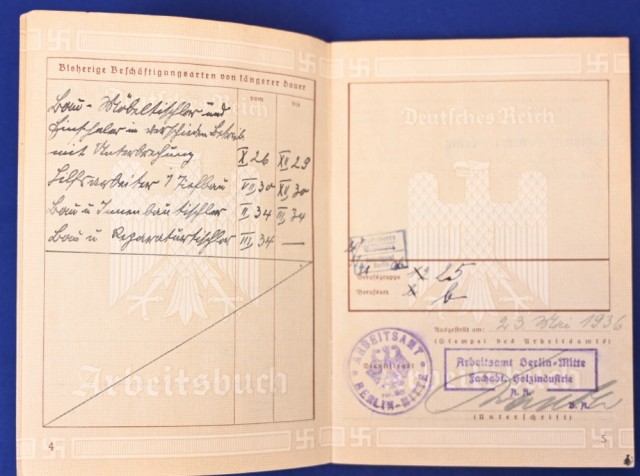 Bisherige Beschäftigungsarten von längerer Dauer
Bau- Möbeltischler und
Einsteller in verschieden Betrieb.
mit Unterbrechung X 26 XII 29
Hilfsarbeiter i Tiefbau VII 30 XII 30
Bau u Innenbautischler II 34 III 34
Bau u Reparaturtischler III 34 —
Arbeitsbuch
4
Deutsches Reich
Berufsgruppe 25
Berufsart b
Ausgestellt am: 23. Mai 1936
(Stempel des Arbeitsamts)
ARBEITSAMT
BERLIN-MITTE
Arbeitsamt Berlin-Mitte
Fachabt. Holzindustrie
(Unterschrift)
5